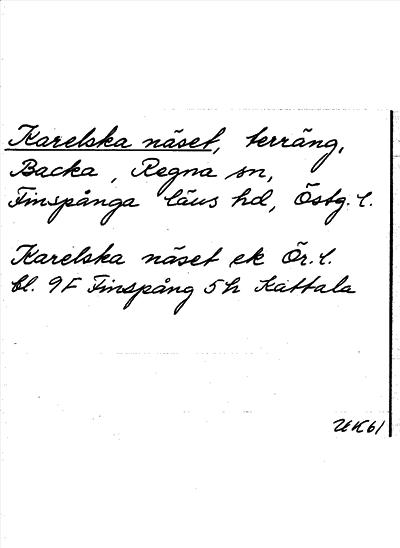 Karelska näset, terräng,
Backa, Regna sn,
Finspånga läns hd, Östg. l.
Karelska näset ek Ör. l.
bl. 9F Finspång 5h Kattala
UK61